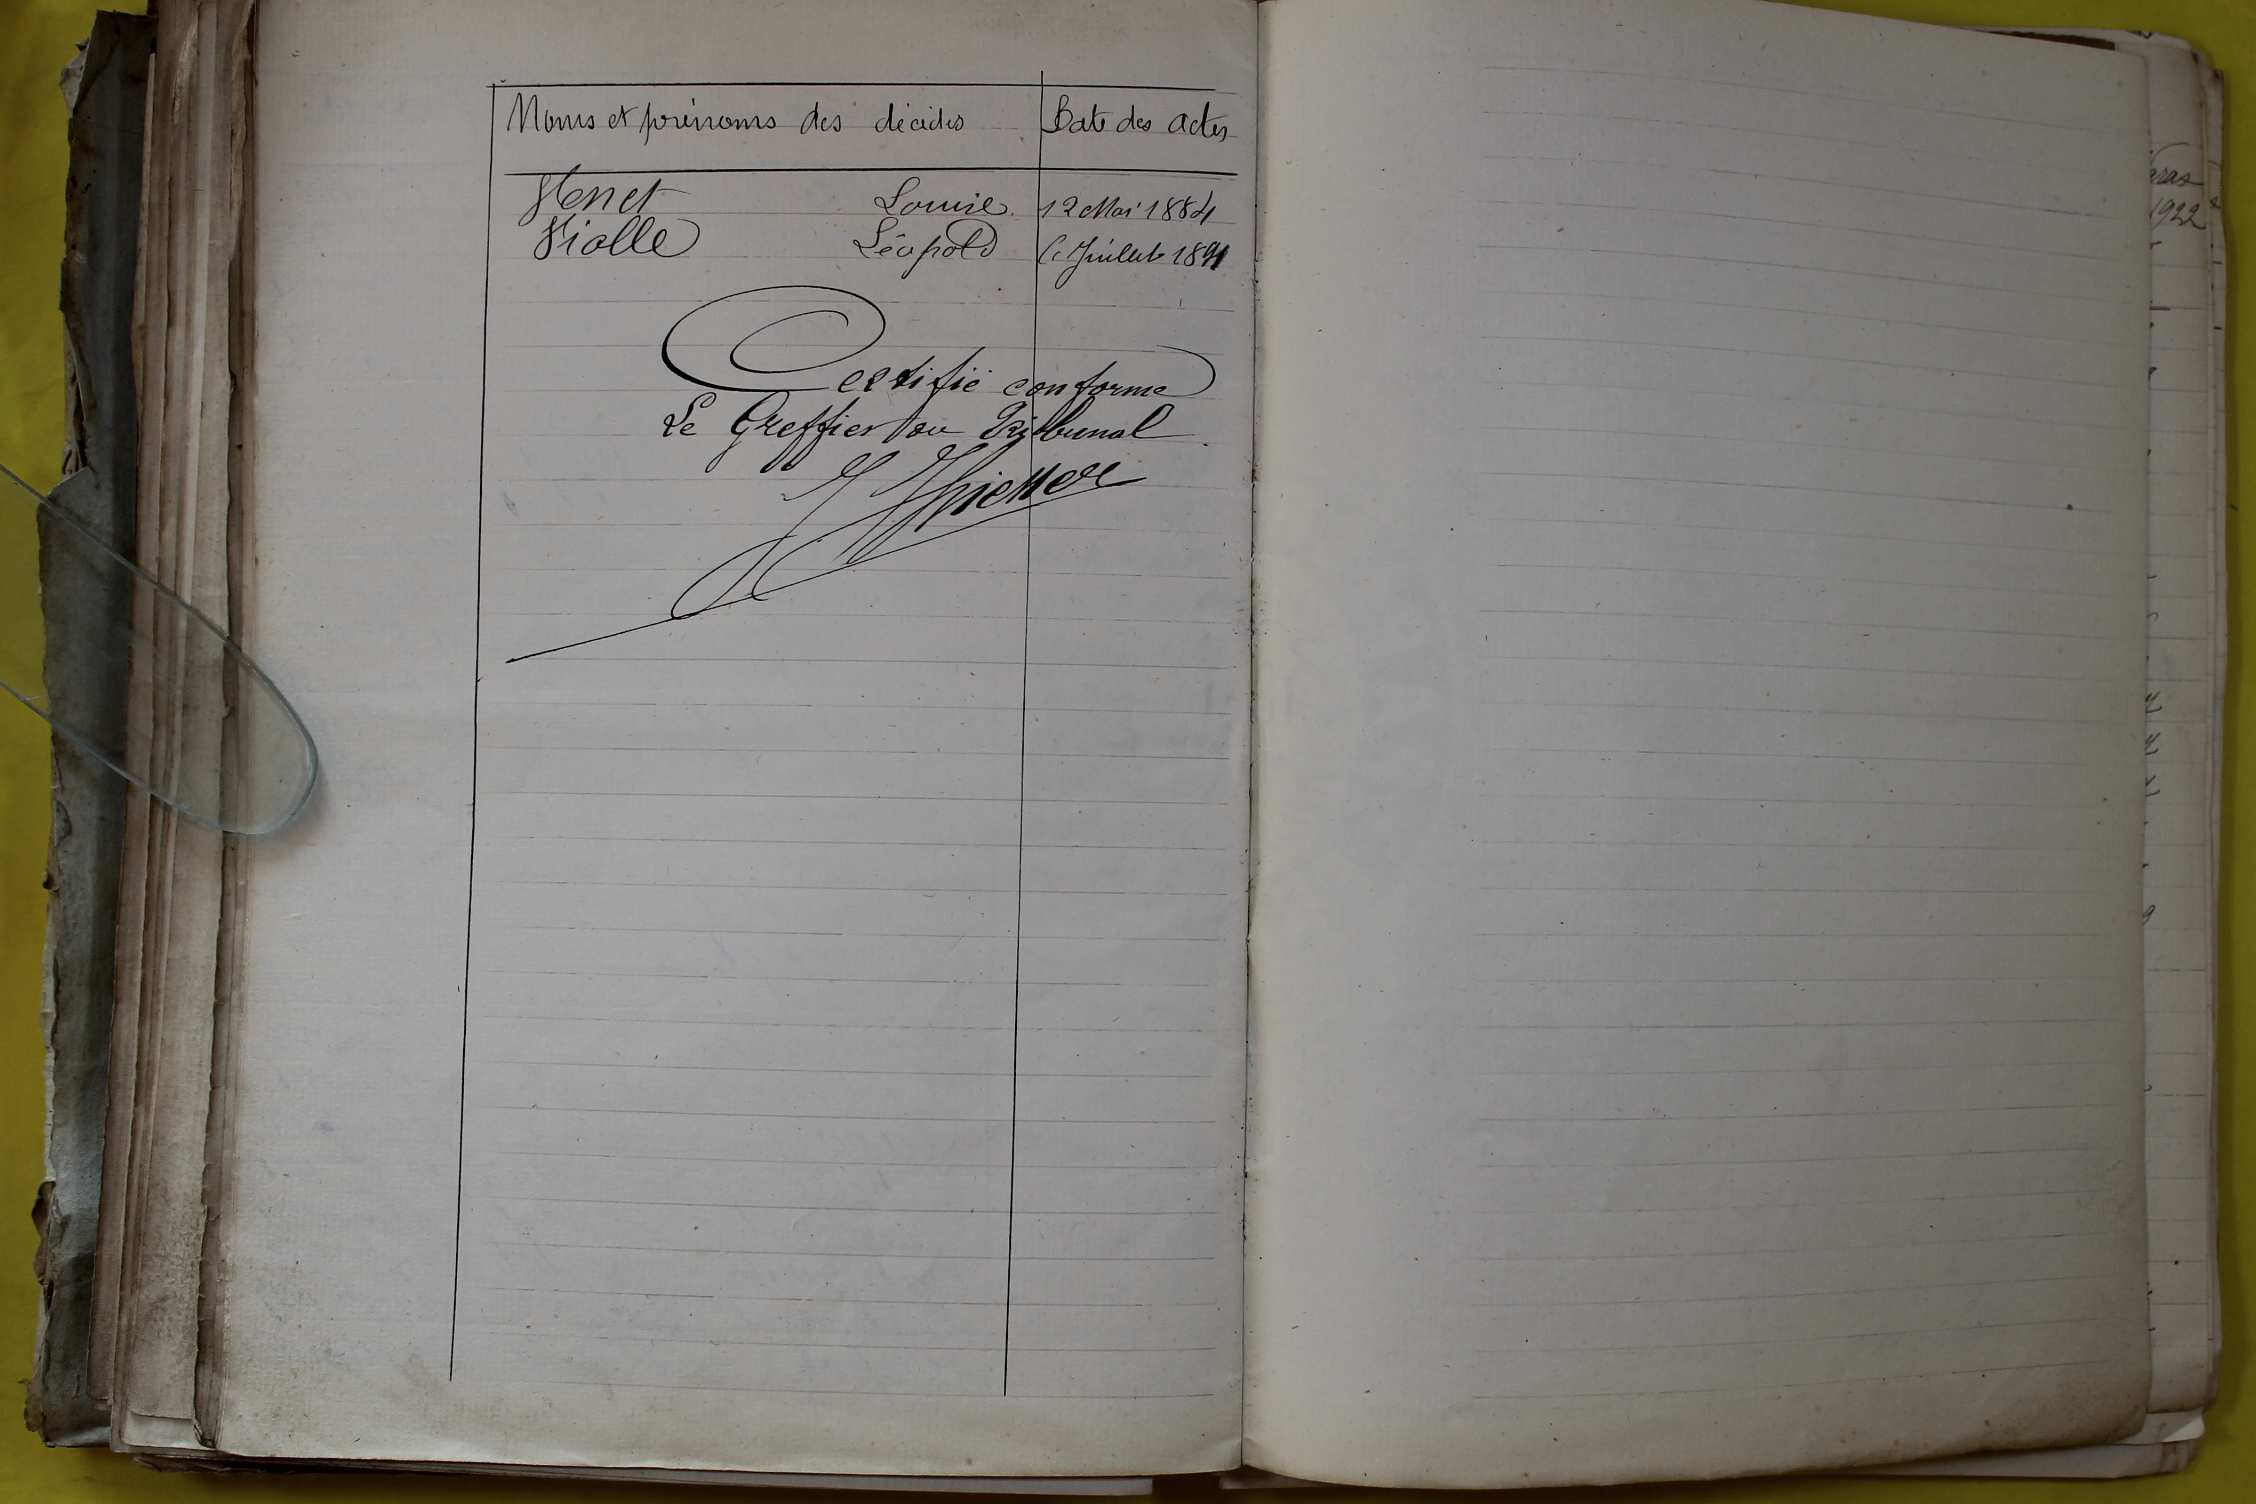 Noms et prénoms des décédés Date des actes
Louise 12 Mai 1884
Violle Léopold 6 Juillet 1891
Certifié conforme
Le Greffier du Tribunal
1922